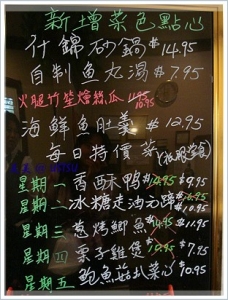 新增菜色點心
什錦砂鍋 $14.95
自制鱼丸湯 $7.95
火腿竹笙燴絲瓜 10.95
海鮮魚肚羹 $12.95
每日特價菜
星期一 香酥鸭 $9.95
星期二 冰糖走油元蹄 $10.95
星期三 葱烤鲫鱼 $11.95
星期四 栗子雞煲 $10.95 $7.95
星期五 鮑魚菇扒菜心 $10.95